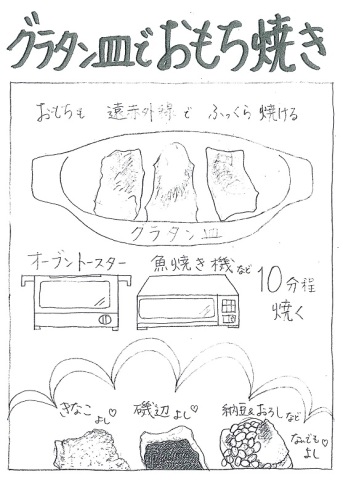 グラタン皿でおもち焼き
おもちも 遠赤外線で ふっくら 焼ける
グラタン皿
オーブントースター 魚焼き機など 10分程
焼く
きなこ よし♡ 磯辺 よし♡ 納豆&おろし など
なんでも よし